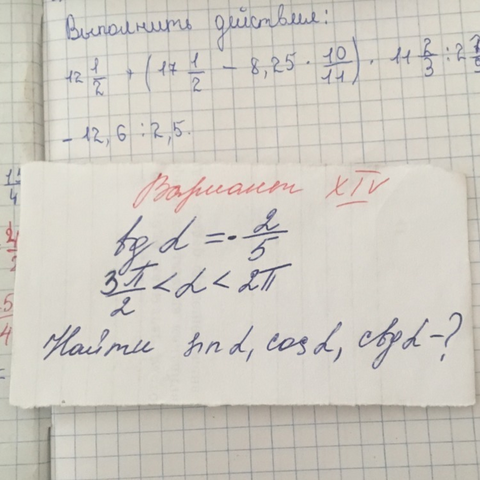 Выполнить действия:
12 1/2 + (17 1/2 - 8,25 · 10/11) · 11 2/3 : 2
- 12,6 : 2,5.
Вариант XIV
tg α = - 2/5
3π/2 < α < 2π
Найти sin α, cos α, ctg α - ?